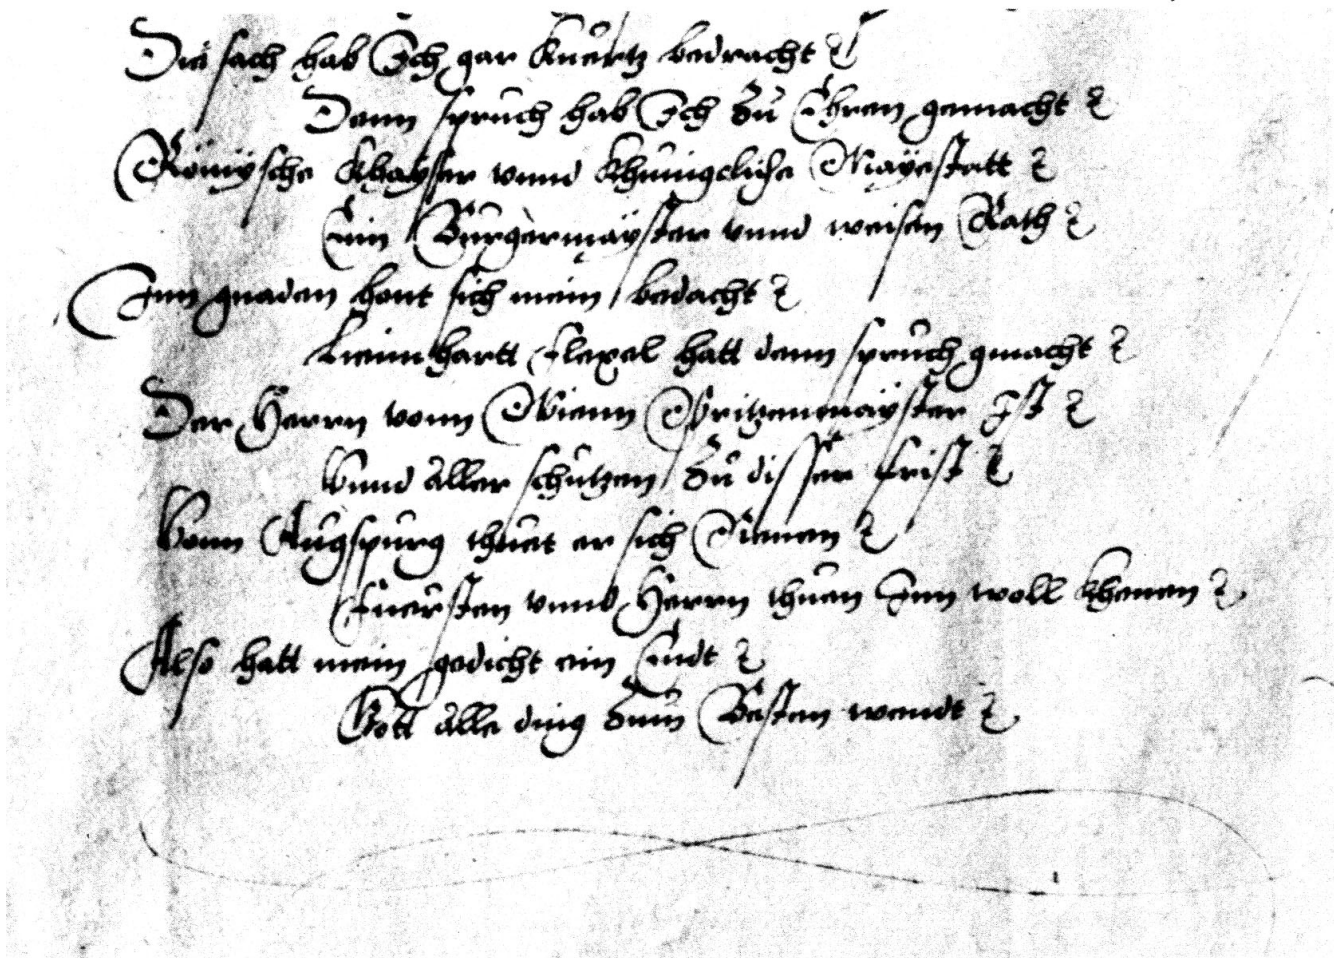 Die sach hab Ich gar Kuertz bedracht
Denn spruch hab Ich Zu Ehren gemacht
Römÿsche Khaÿsser vnnd Khunigeliche Maÿestatt
Ein Burgermaÿster vnnd weisen Rath
Inn gnaden hont sich mein bedacht
Lienhartt Flexel hatt denn spruch gmacht
Der Herrn vonn Wienn Britzenmaÿster Ist
Vnnd aller schutzen Zu disser frist
Vonn Augspurg thuet er sich Nienen
Fuersten vnnd Herrn thuen Inn woll Khenen
Also hatt mein gedicht ein Endt
Gott alle ding Zum Besten wendt